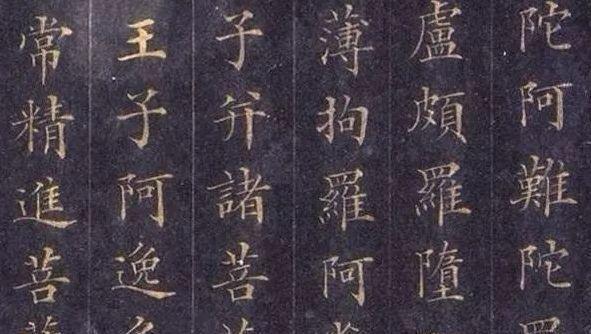 陀阿難陀
盧頗羅墮
薄拘羅阿
子并諸菩
王子阿逸
常精進菩